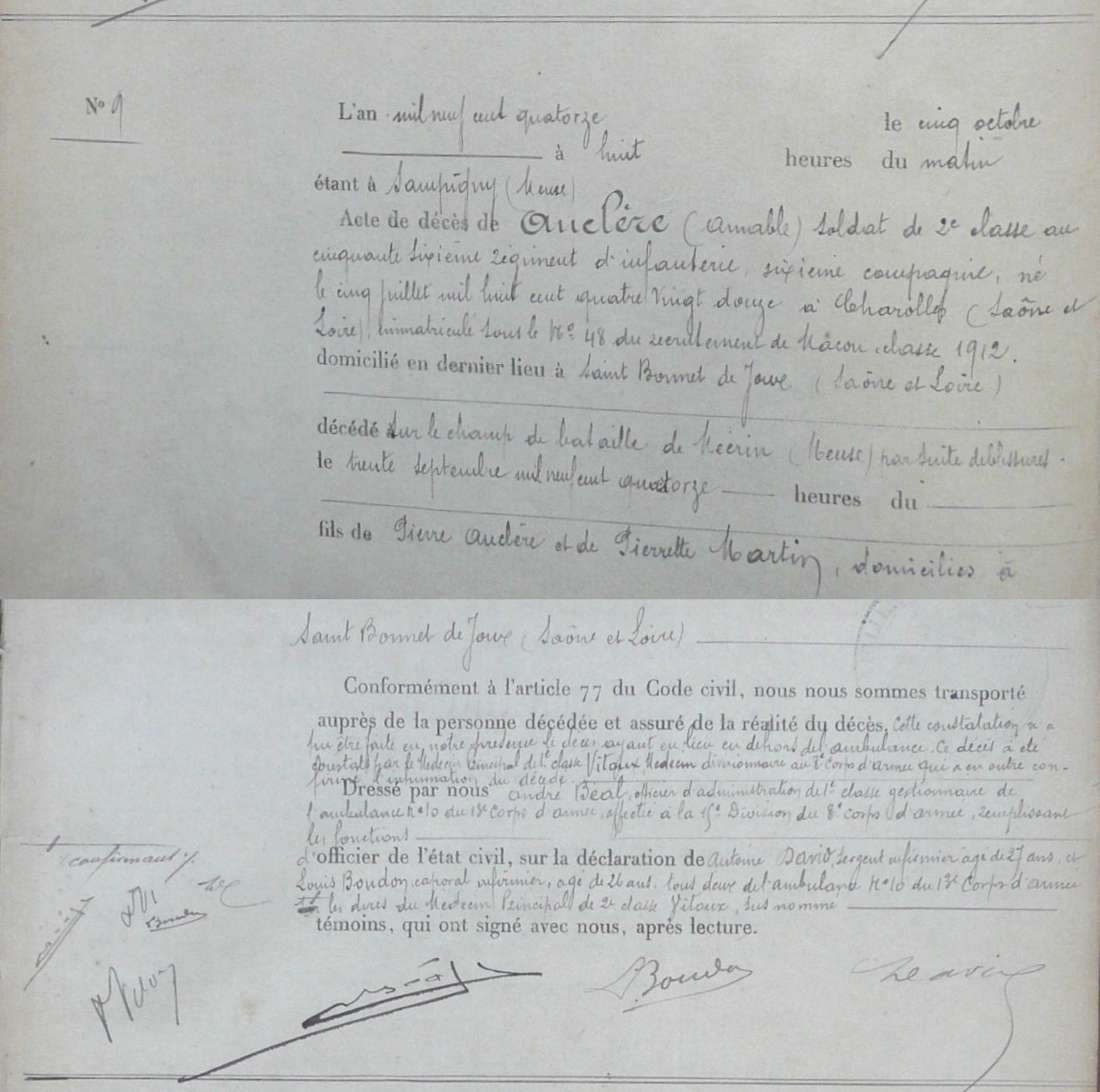 N° 9
L'an mil neuf cent quatorze le cinq octobre
à huit heures du matin
étant à Sampigny (Meuse)
Acte de décès de Auclère (Amable) soldat de 2e classe au
cinquante sixième régiment d'infanterie, sixième compagnie, né
le cinq juillet mil huit cent quatre vingt douze à Charolles (Saône et
Loire), immatriculé sous le N° 48 du recrutement de Mâcon, classe 1912.
domicilié en dernier lieu à Saint Bonnet de Joux (Saône et Loire)
décédé sur le champ de bataille de Mécrin (Meuse) par suite de blessures
le trente septembre mil neuf cent quatorze heures du
fils de Pierre Auclère et de Pierrette Martin, domiciliés à
Saint Bonnet de Joux (Saône et Loire)
Conformément à l'article 77 du Code civil, nous nous sommes transporté
auprès de la personne décédée et assuré de la réalité du décès, Cette constatation n'a
pu être faite en notre présence le décès ayant eu lieu en dehors de l'ambulance. Ce décès a été
constaté par le Médecin principal de classe Vitoux, Médecin divisionnaire au corps d'armée qui a en outre con-
firmé l'inhumation du décédé.
Dressé par nous André Béal, officier d'administration de 1e classe gestionnaire de
l'ambulance N° 10 du 13e Corps d'armée, affectée à la 15e Division du 8e corps d'armée, remplissant
les fonctions
d'officier de l'état civil, sur la déclaration de Antoine David, sergent infirmier âgé de 27 ans, et
Louis Boudon, caporal infirmier, âgé de 26 ans, tous deux de l'ambulance N° 10 du 13e Corps d'armée
confirmant
les dires du Médecin Principal de 2e classe Vitoux, sus nommé
témoins, qui ont signé avec nous, après lecture.
Boudon
L. Boudon